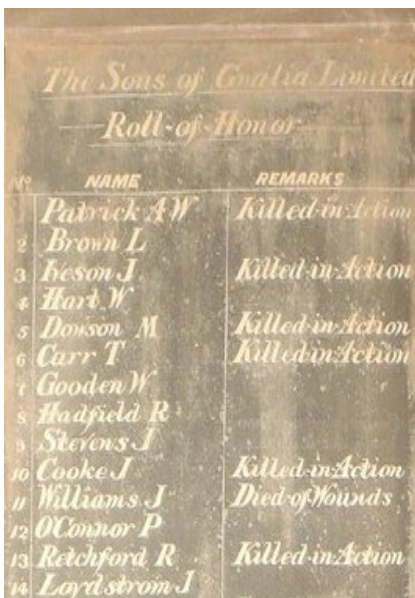 The Sons of Gwalia Limited
Roll-of-Honor
No NAME REMARKS
1 Patrick A W Killed-in-Action
2 Brown L
3 Iveson J Killed-in-Action
4 Hart W
5 Dowson M Killed-in-Action
6 Carr T Killed-in-Action
7 Gooden W
8 Hadfield R
9 Stevens J
10 Cooke J Killed-in-Action
11 Williams J Died-of-Wounds
12 O'Connor P
13 Retchford R Killed-in-Action
14 Loydstrom J